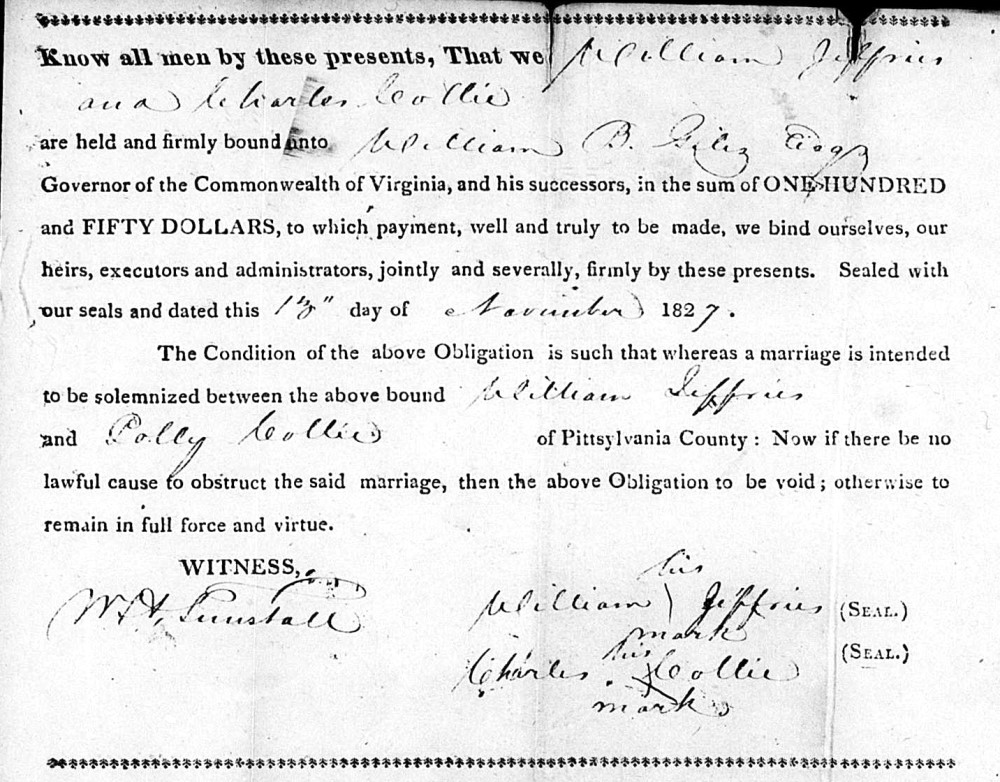 Know all men by these presents, That we William Jeffries
and Charles Collie
are held and firmly bound unto William B. Giles Esqr
Governor of the Commonwealth of Virginia, and his successors, in the sum of ONE HUNDRED
and FIFTY DOLLARS, to which payment, well and truly to be made, we bind ourselves, our
heirs, executors and administrators, jointly and severally, firmly by these presents. Sealed with
our seals and dated this day of November 1827.
The Condition of the above Obligation is such that whereas a marriage is intended
to be solemnized between the above bound William Jeffries
and Polly Collie of Pittsylvania County: Now if there be no
lawful cause to obstruct the said marriage, then the above Obligation to be void; otherwise to
remain in full force and virtue.
WITNESS,
W. H. Tunstall
his
William Jeffries (SEAL.)
mark
his
Charles X Collie (SEAL.)
mark